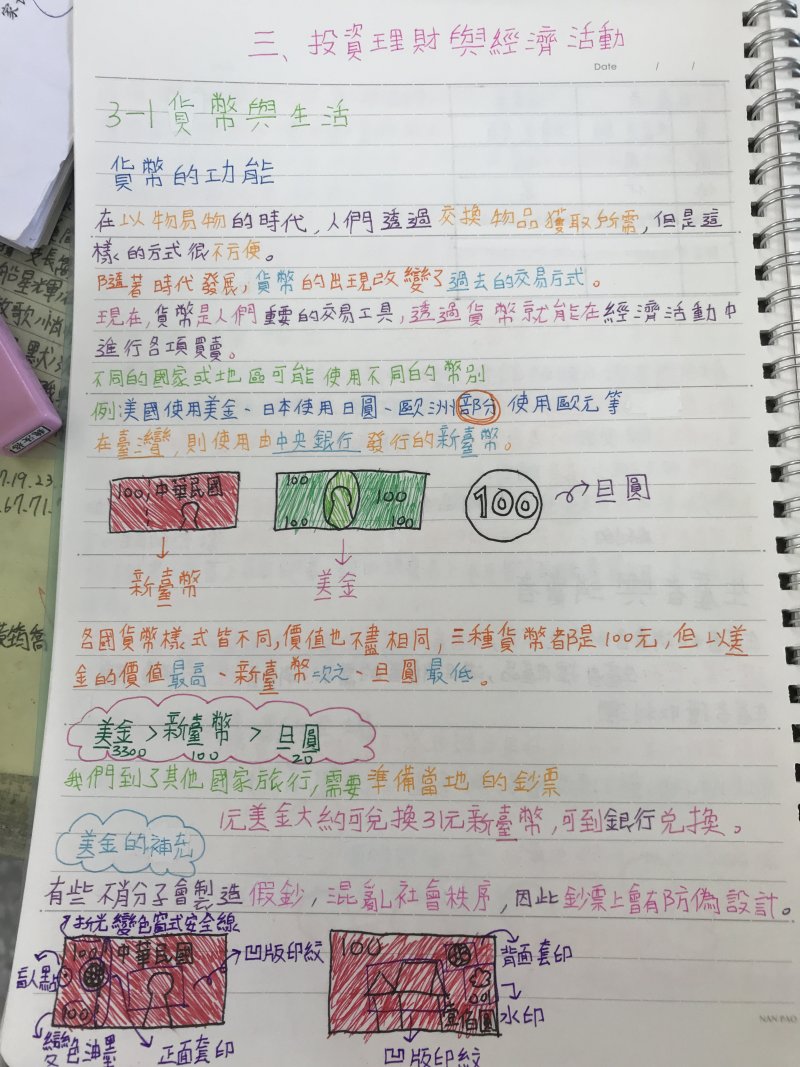 三、投資理財與經濟活動
Date / /
3-1貨幣與生活
貨幣的功能
在以物易物的時代,人們透過交換物品獲取所需,但是這
樣的方式很不方便。
隨著時代發展,貨幣的出現改變了過去的交易方式。
現在,貨幣是人們重要的交易工具,透過貨幣就能在經濟活動中
進行各項買賣。
不同的國家或地區可能使用不同的幣別
例:美國使用美金、日本使用日圓、歐洲部分使用歐元等
在臺灣,則使用由中央銀行發行的新臺幣。
100 中華民國
100 100 100 100
100 日圓
新臺幣 美金
各國貨幣樣式皆不同,價值也不盡相同,三種貨幣都是100元,但以美
金的價值最高、新臺幣次之、日圓最低。
美金>新臺幣>日圓
3300 100 20
我們到了其他國家旅行,需要準備當地的鈔票
1元美金大約可兌換31元新臺幣,可到銀行兌換。
美金的補充
有些不肖分子會製造假鈔,混亂社會秩序,因此鈔票上會有防偽設計。
折光變色窗式安全線
100 中華民國 凹版印紋 100 背面套印
盲人點
100 壹佰圓 水印
變色油墨 正面套印 凹版印紋
NAN PAO
7.19.23
.67.71.